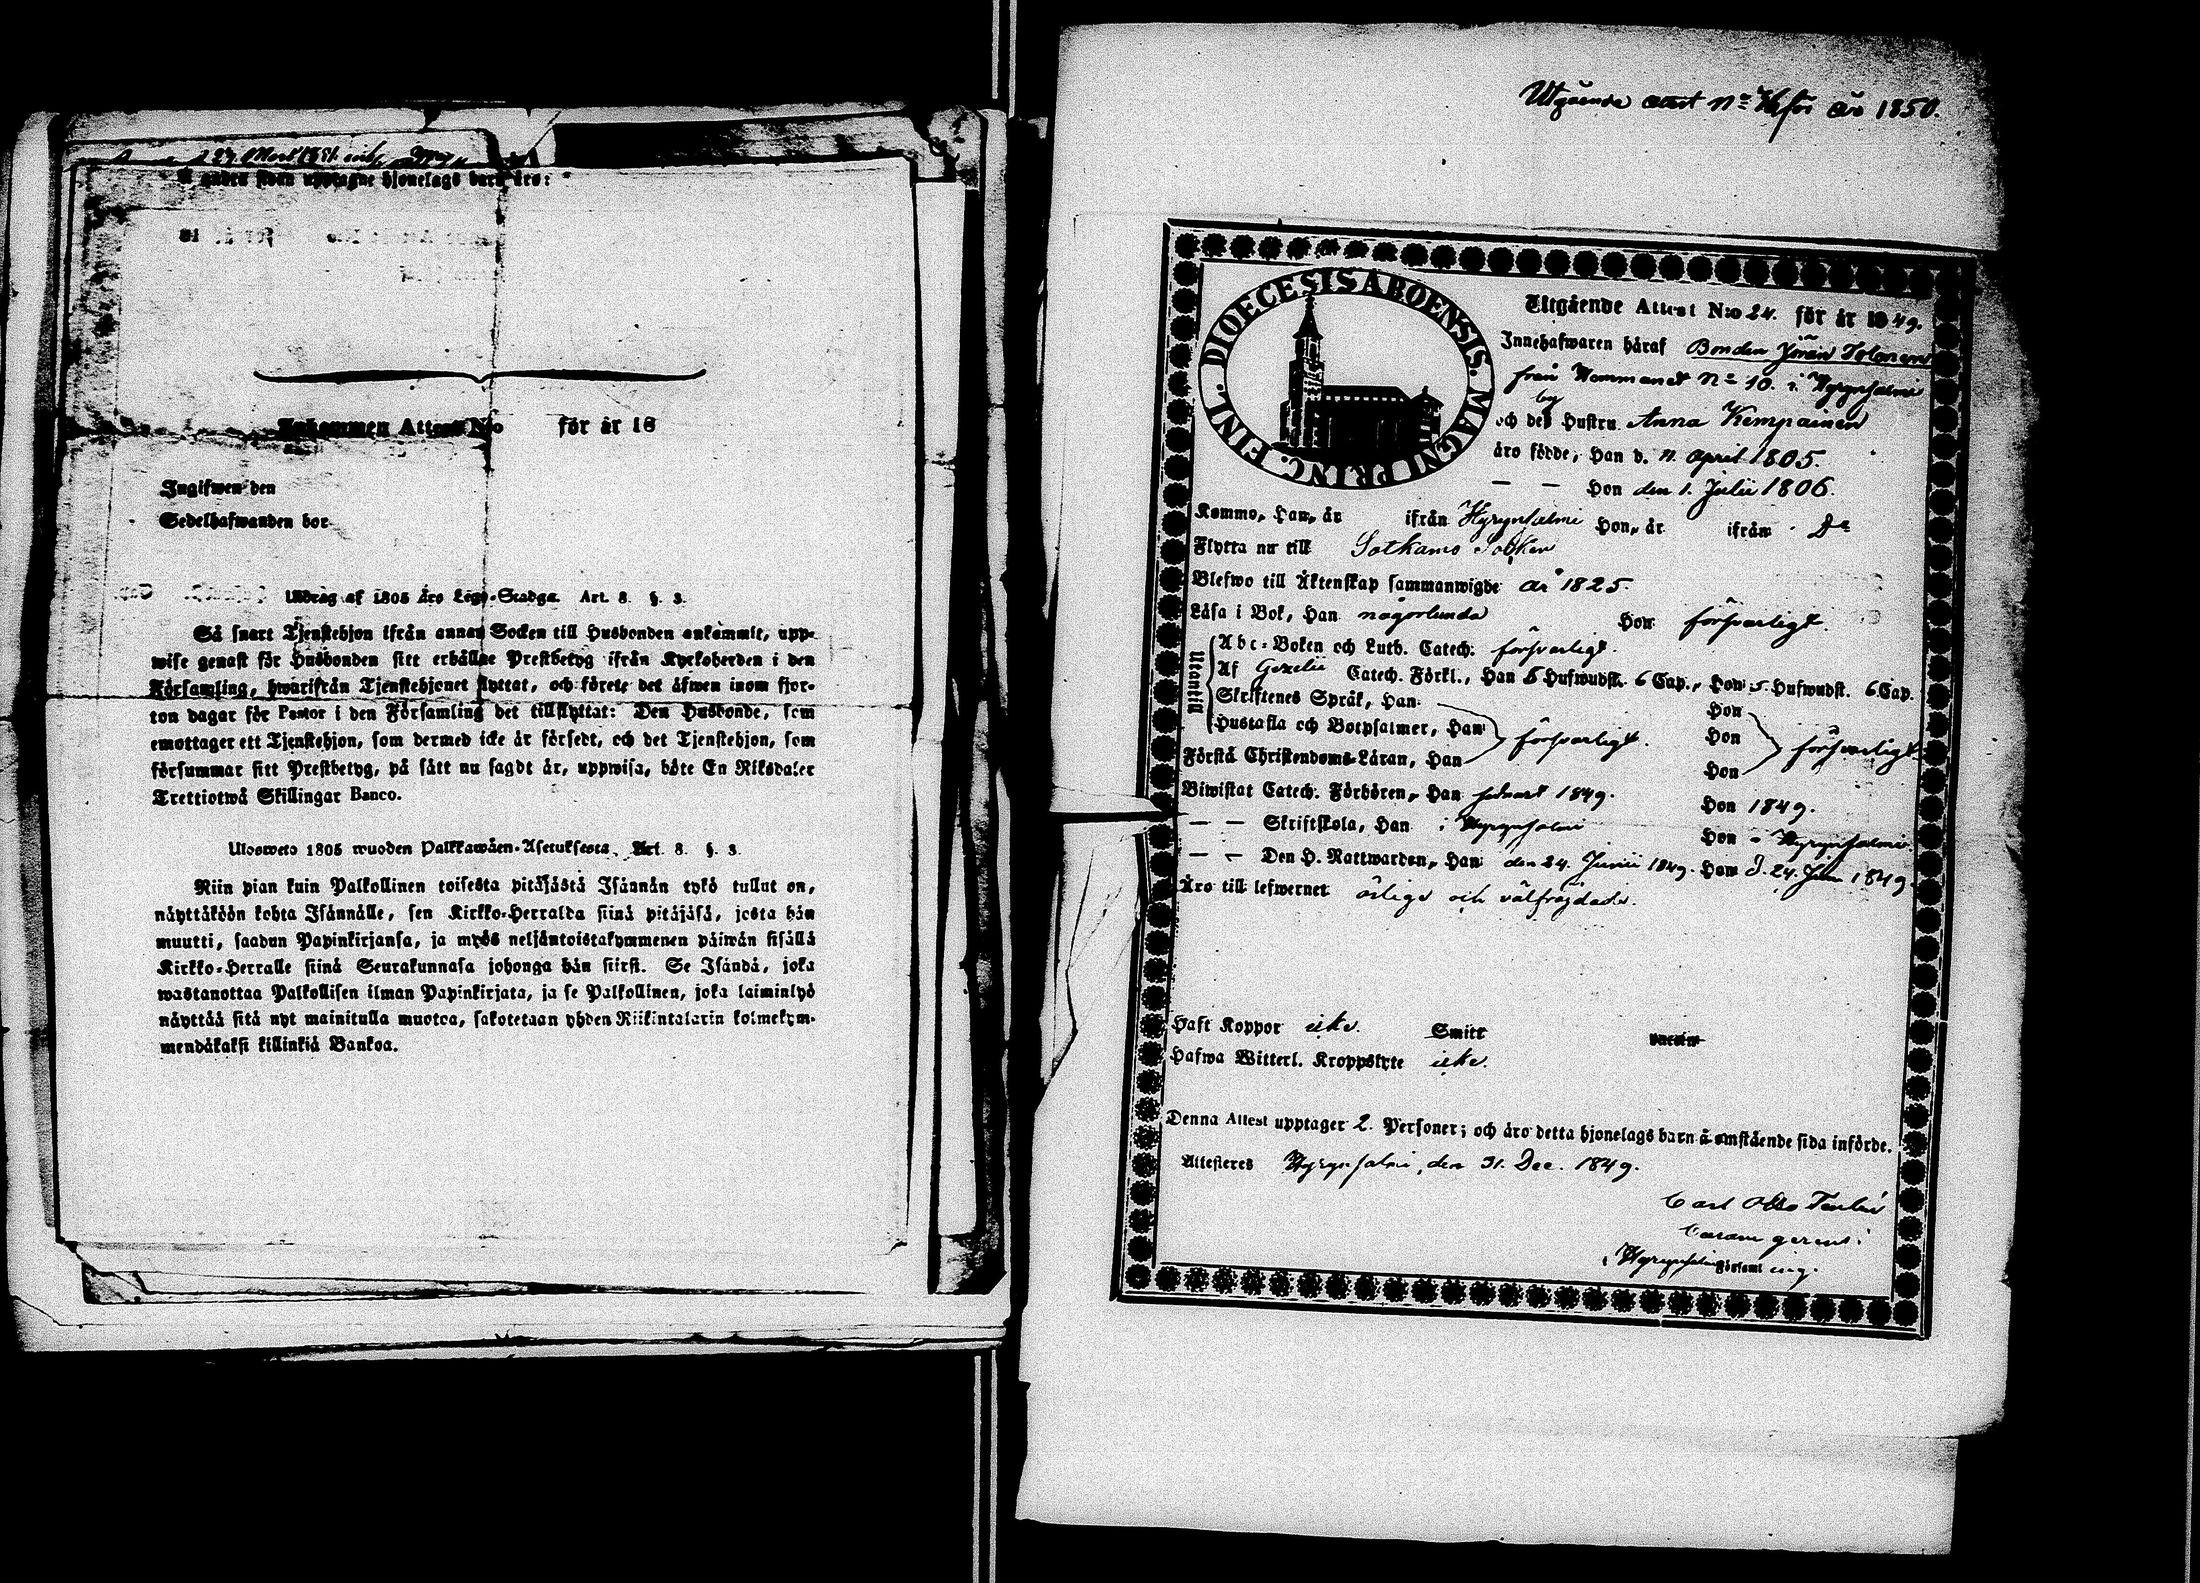 27
å andra sidan upptagne hjonelags barn äro:
Inkommen Attest No för år 18
Ingifwen den
Sedelhafwanden bor
Utdrag af 1805 års Lego-Stadga Art. 8. §. 3.
Så snart Tjenstehjon ifrån annan Socken till Husbonden ankommit, upp-
wise genast för Husbonden sitt erhållne Prestbetyg ifrån Kyrkoherden i den
Församling, hwarifrån Tjenstehjonet flyttat, och förete det äfwen inom fjor-
ton dagar för Pastor i den Församling det tillflyttat: Den Husbonde, som
emottager ett Tjenstehjon, som dermed icke är försedt, och det Tjenstehjon, som
försummar sitt Prestbetyg, på sätt nu sagdt är, uppwisa, böte En Riksdaler
Trettiotwå Skillingar Banco.
Ulosweto 1805 wuoden Palkkawäen-Asetuksesta Art. 8. §. 3.
Niin pian kuin Palkollinen toisesta pitäjästä Isännän tykö tullut on,
näyttäköön kohta Isännälle, sen Kirkko-Herralda siinä pitäjäsä, josta hän
muutti, saadun Papinkirjansa, ja myös neljäntoistakymmenen päiwän sisällä
Kirkko-Herralle siinä Seurakunnasa johonga hän siirst. Se Isändä, joka
wastanottaa Palkollisen ilman Papinkirjata, ja se Palkollinen, joka laiminlyö
näyttää sitä nyt mainitulla muotoa, sakotetaan yhden Riikintalarin kolmekym-
mendäkaksi killinkiä Bankoa.
Utgående attest No för år 1850.
FINL. DIOECESIS ABOENSIS. MAGNI PRINC.
Utgående Attest N:o 24. för år 1849.
Innehafwaren häraf Bonden Jöran Tolonen
från Hemmanet No 10. i Hyrynsalmi
by
och des Hustru Anna Kempainen
äro födde, Han d. 11. April 1805.
— — Hon den 1. Julii 1806.
Kommo, Han, år ifrån Hyrynsalmi Hon, år ifrån Do
Flytta nu till Sotkamo Socken
Blefwo till Äktenskap sammanwigde år 1825.
Läsa i Bok, Han någorlunda Hon försvarligt.
Utantill
Abc-Boken och Luth. Catech: försvarligt.
Af Gezelii Catech. Förkl., Han 5 Hufwudst. 6 Cap., Hon 5. Hufwudst. 6 Cap.
Skriftenes Språk, Han Hon
Hustafla och Botpsalmer, Han försvarligt. Hon försvarligt
Förstå Christendoms-Läran, Han Hon
Biwistat Catech. Förhören, Han 1849. Hon 1849.
— — Skriftskola, Han i Hyrynsalmi Hon i Hyrynsalmi
— — Den H. Nattwarden, Han den 24. Junii 1849. Hon d. 24. Jun 1849.
Äro till lefwernet ärlige och välfräjdade.
Haft Koppor icke. Smitt naturl.
Hafwa Witterl. Kroppslyte icke.
Denna Attest upptager 2. Personer; och äro detta hjonelags barn å omstående sida införde.
Attesteres Hyrynsalmi, den 31. Dec. 1849.
Carl Otto
Curam gerens
i Hyrynsalmi Församling.